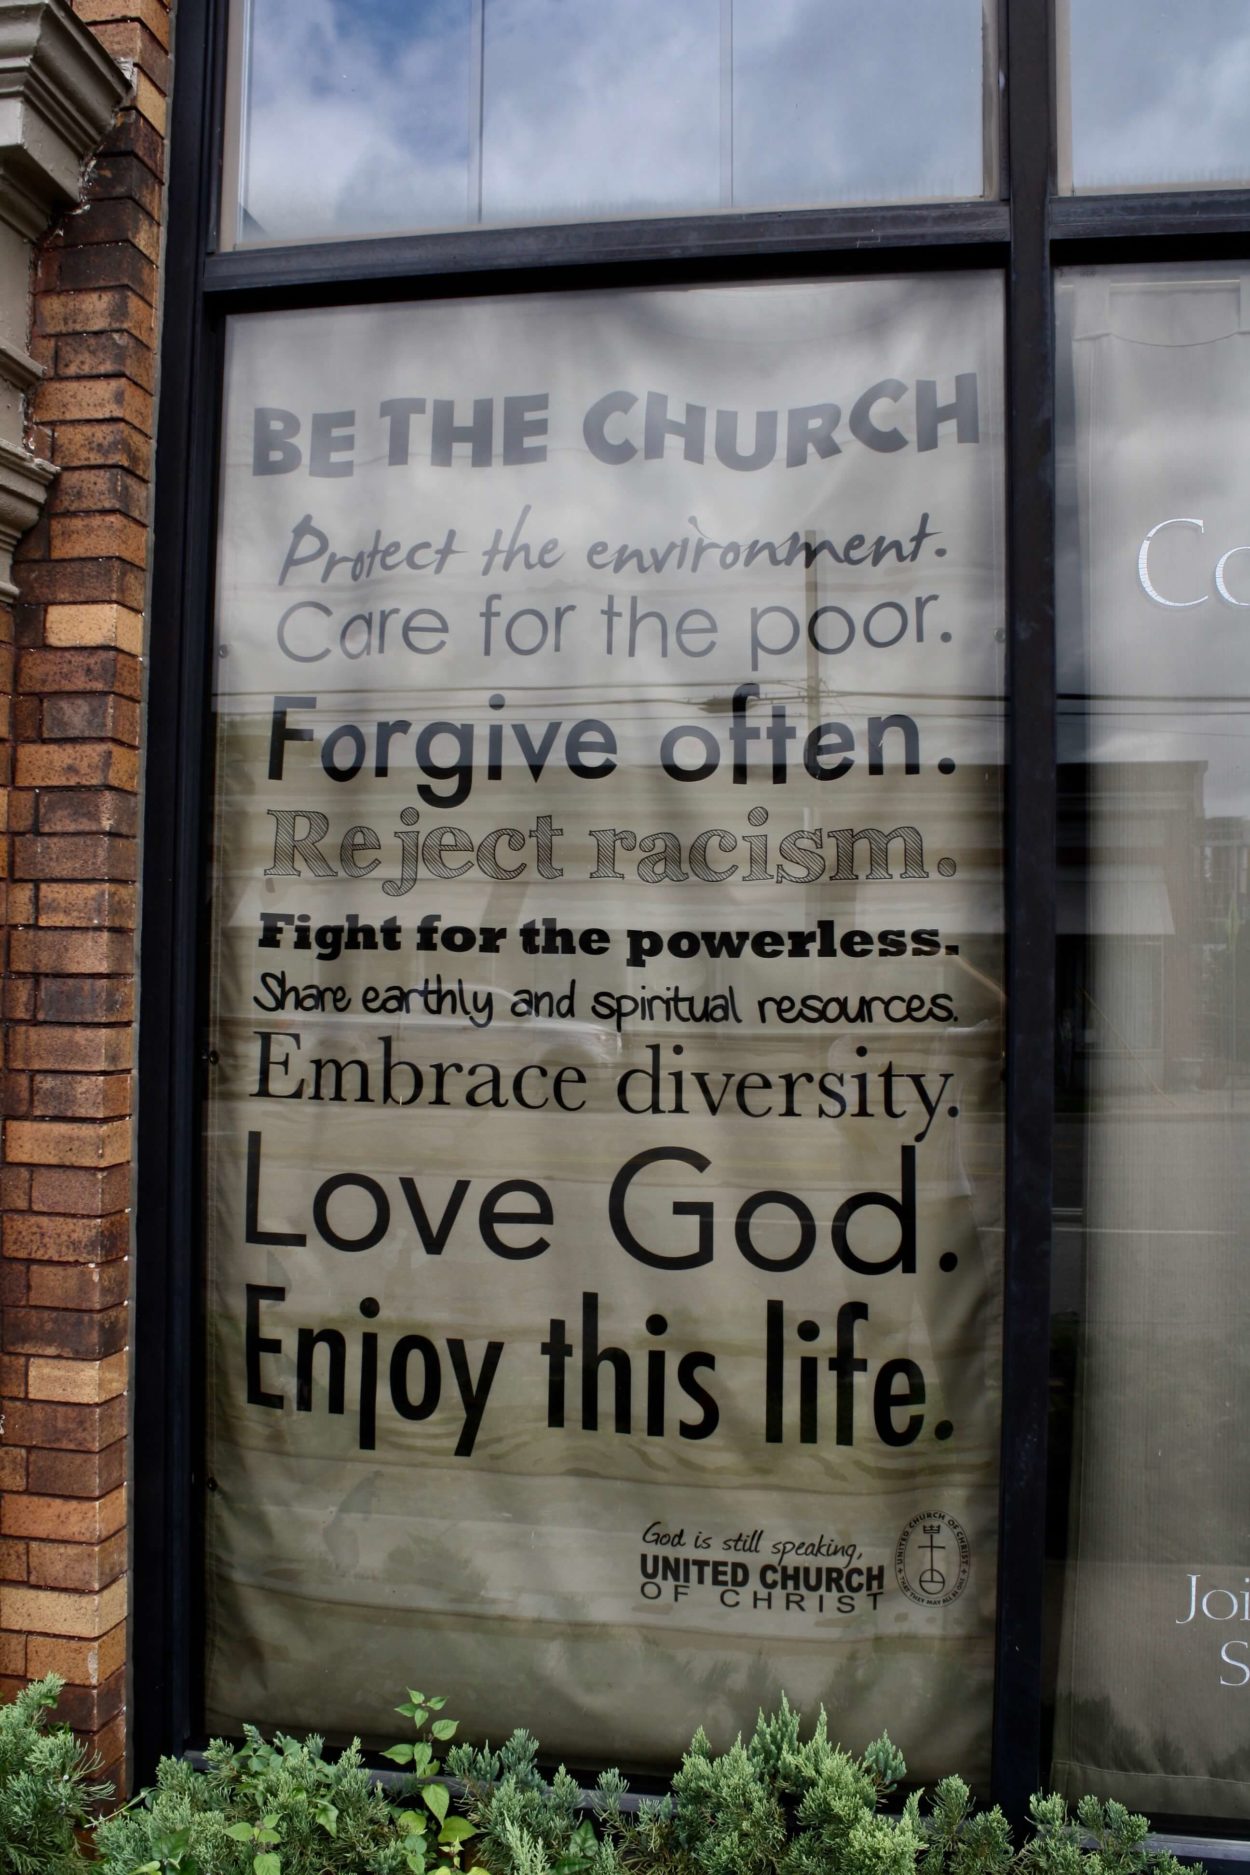 BE THE CHURCH
Protect the environment.
Care for the poor.
Forgive often.
Reject racism.
Fight for the powerless.
Share earthly and spiritual resources.
Embrace diversity.
Love God.
Enjoy this life.
God is still speaking,
UNITED CHURCH
OF CHRIST
UNITED CHURCH OF CHRIST
THAT THEY MAY ALL BE ONE